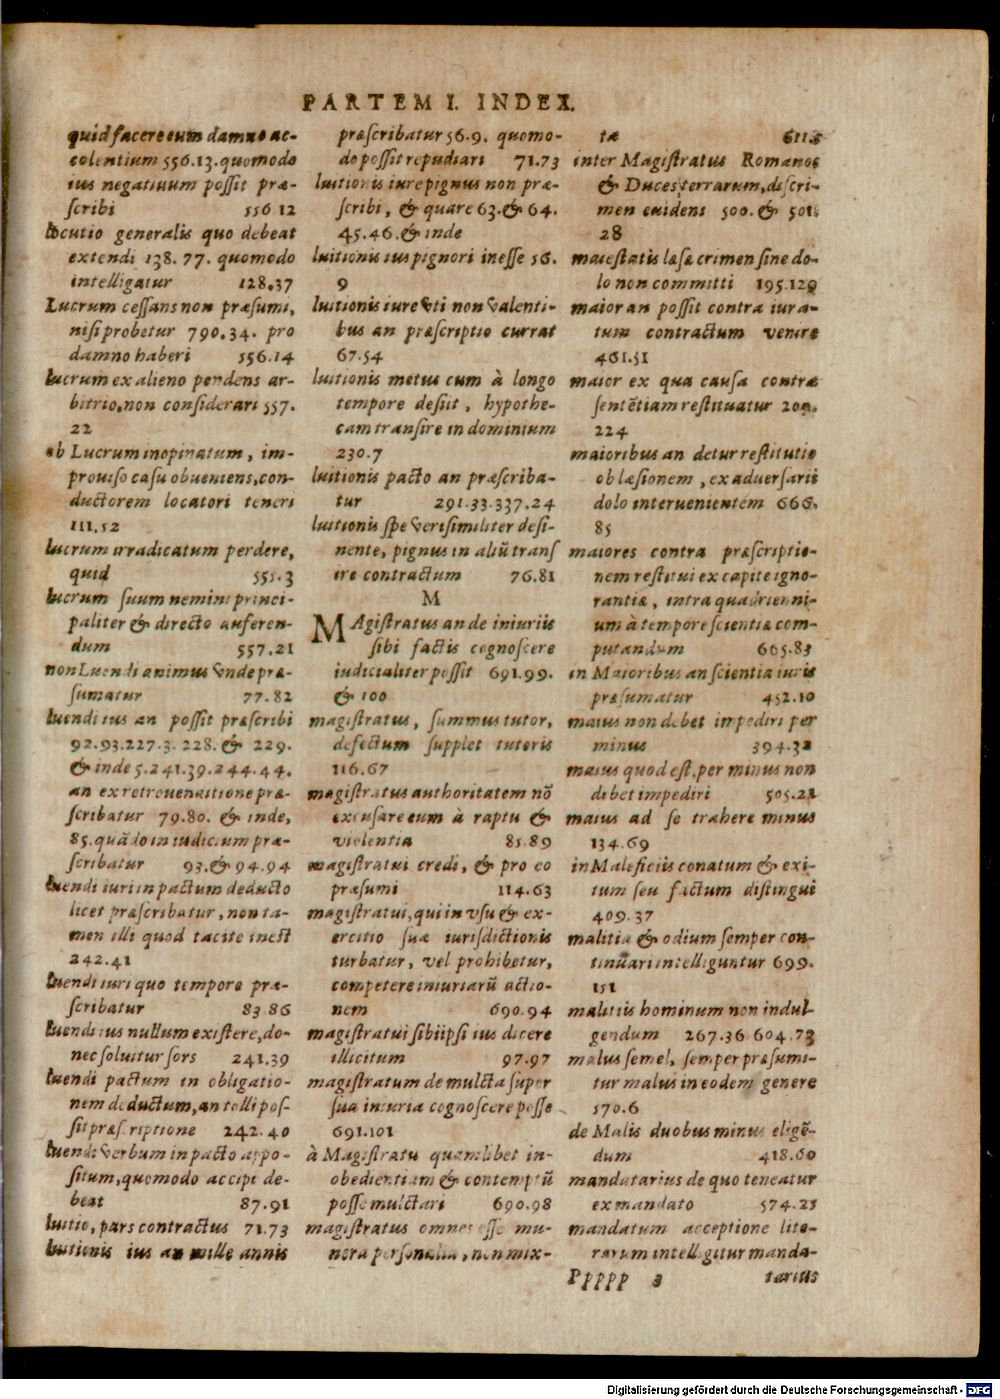 PARTEM I. INDEX.
quid facere eum damno ac-
colentium 556.13. quomodo
ius negatiuum possit præ-
scribi 556 12
locutio generalis quo debeat
extendi 138. 77. quomodo
intelligatur 128.37
Lucrum cessans non præsumi,
nisi probetur 790.34. pro
damno haberi 556.14
lucrum ex alieno pendens ar-
bitrio, non considerari 557.
22
ob Lucrum inopinatum, im-
prouiso casu obueniens, con-
ductorem locatori teneri
111.52
lucrum irradicatum perdere,
quid 555.3
lucrum suum nemini princi-
paliter & directo auferen-
dum 557.21
non Luendi animus vnde præ-
sumatur 77.82
luendi ius an possit præscribi
92.93.227.3. 228. & 229.
& inde 5.241.39.244.44.
an ex retrouenditione præ-
scribatur 79.80. & inde,
85. quãdo in iudicium præ-
scribatur 93.& 94.94
luendi iuri in pactum deducto
licet præscribatur, non ta-
men illi quod tacite inest
242.41
luendi iuri quo tempore præ-
scribatur 83.86
luendi ius nullum existere, do-
nec soluitur sors 241.39
luendi pactum in obligatio-
nem deductum, an tolli pos-
sit præscriptione 242.40
luendi verbum in pacto appo-
situm, quomodo accipi de-
beat 87.91
luitio, pars contractus 71.73
luitionis ius an mille annis
præscribatur 56.9. quomo-
do possit repudiari 71.73
luitionis iure pignus non præ-
scribi, & quare 63.& 64.
45.46.& inde
luitionis ius pignori inesse 56.
9
luitionis iure vti non valenti-
bus an præscriptio currat
67.54
luitionis metus cum à longo
tempore desiit, hypothe-
cam transire in dominium
230.7
luitionis pacto an præscriba-
tur 291.33.337.24
luitionis spe verisimiliter desi-
nente, pignus in aliũ trans
ire contractum 76.81
M
MAgistratus an de iniuriis
sibi factis cognoscere
iudicialiter possit 691.99.
& 100
magistratus, summus tutor,
defectum supplet tutoris
116.67
magistratus authoritatem nõ
excusare eum à raptu &
violentia 85.89
magistratui credi, & pro eo
præsumi 114.63
magistratui, qui in vsu & ex-
ercitio suæ iurisdictionis
turbatur, vel prohibetur,
competere iniuriarũ actio-
nem 690.94
magistratui sibiipsi ius dicere
illicitum 97.97
magistratum de mulcta super
sua iniuria cognoscere posse
691.101
à Magistratu quamlibet in-
obedientiam & contemptũ
posse mulctari 690.98
magistratus omnes esse mu-
nera personalia, non mix-
ta 611.5
inter Magistratus Romanos
& Duces terrarum, discri-
men euidens 500. & 501.
28
maiestatis læsæ crimen sine do-
lo non committi 195.129
maior an possit contra iura-
tum contractum venire
461.51
maior ex qua causa contra
sentẽtiam restituatur 209.
224
maioribus an detur restitutio
ob læsionem, ex aduersarii
dolo interuenientem 666.
85
maiores contra præscriptio-
nem restitui ex capite igno-
rantiæ, intra quadrienni-
um à tempore scientiæ com-
putandum 665.83
in Maioribus an scientia iuris
præsumatur 452.10
maius non debet impediri per
minus 394.32
maius quod est, per minus non
debet impediri 505.21
maius ad se trahere minus
134.69
in Maleficiis conatum & exi-
tum seu factum distingui
409.37
malitia & odium semper con-
tinuari intelliguntur 699.
151
malitiis hominum non indul-
gendum 267.36 604.73
malus semel, semper præsumi-
tur malus in eodem genere
570.6
de Malis duobus minus eligẽ-
dum 418.60
mandatarius de quo teneatur
ex mandato 574.25
mandatum acceptione lite-
rarum intelligitur manda-
Ppppp 3 tarius
Digitalisierung gefördert durch die Deutsche Forschungsgemeinschaft - DFG